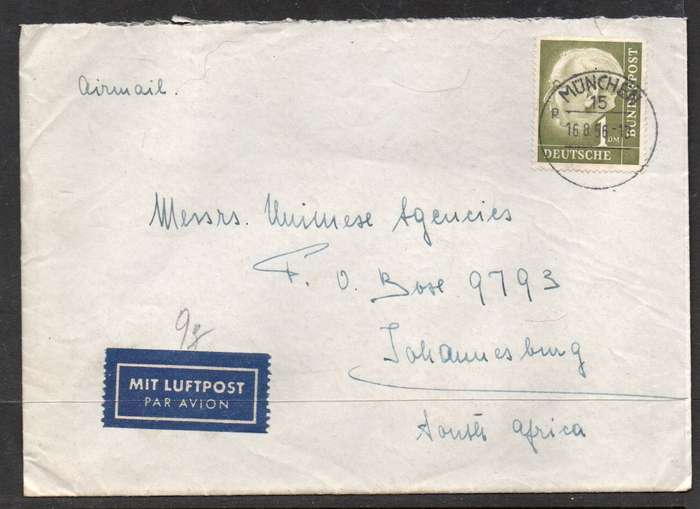 Airmail.
DEUTSCHE
BUNDESPOST
1 DM
MÜNCHEN
15
16.8.56-1
Messrs. Unimese Agencies
P. O. Boxe 9793
Johannesburg
South Africa
9g
MIT LUFTPOST
PAR AVION